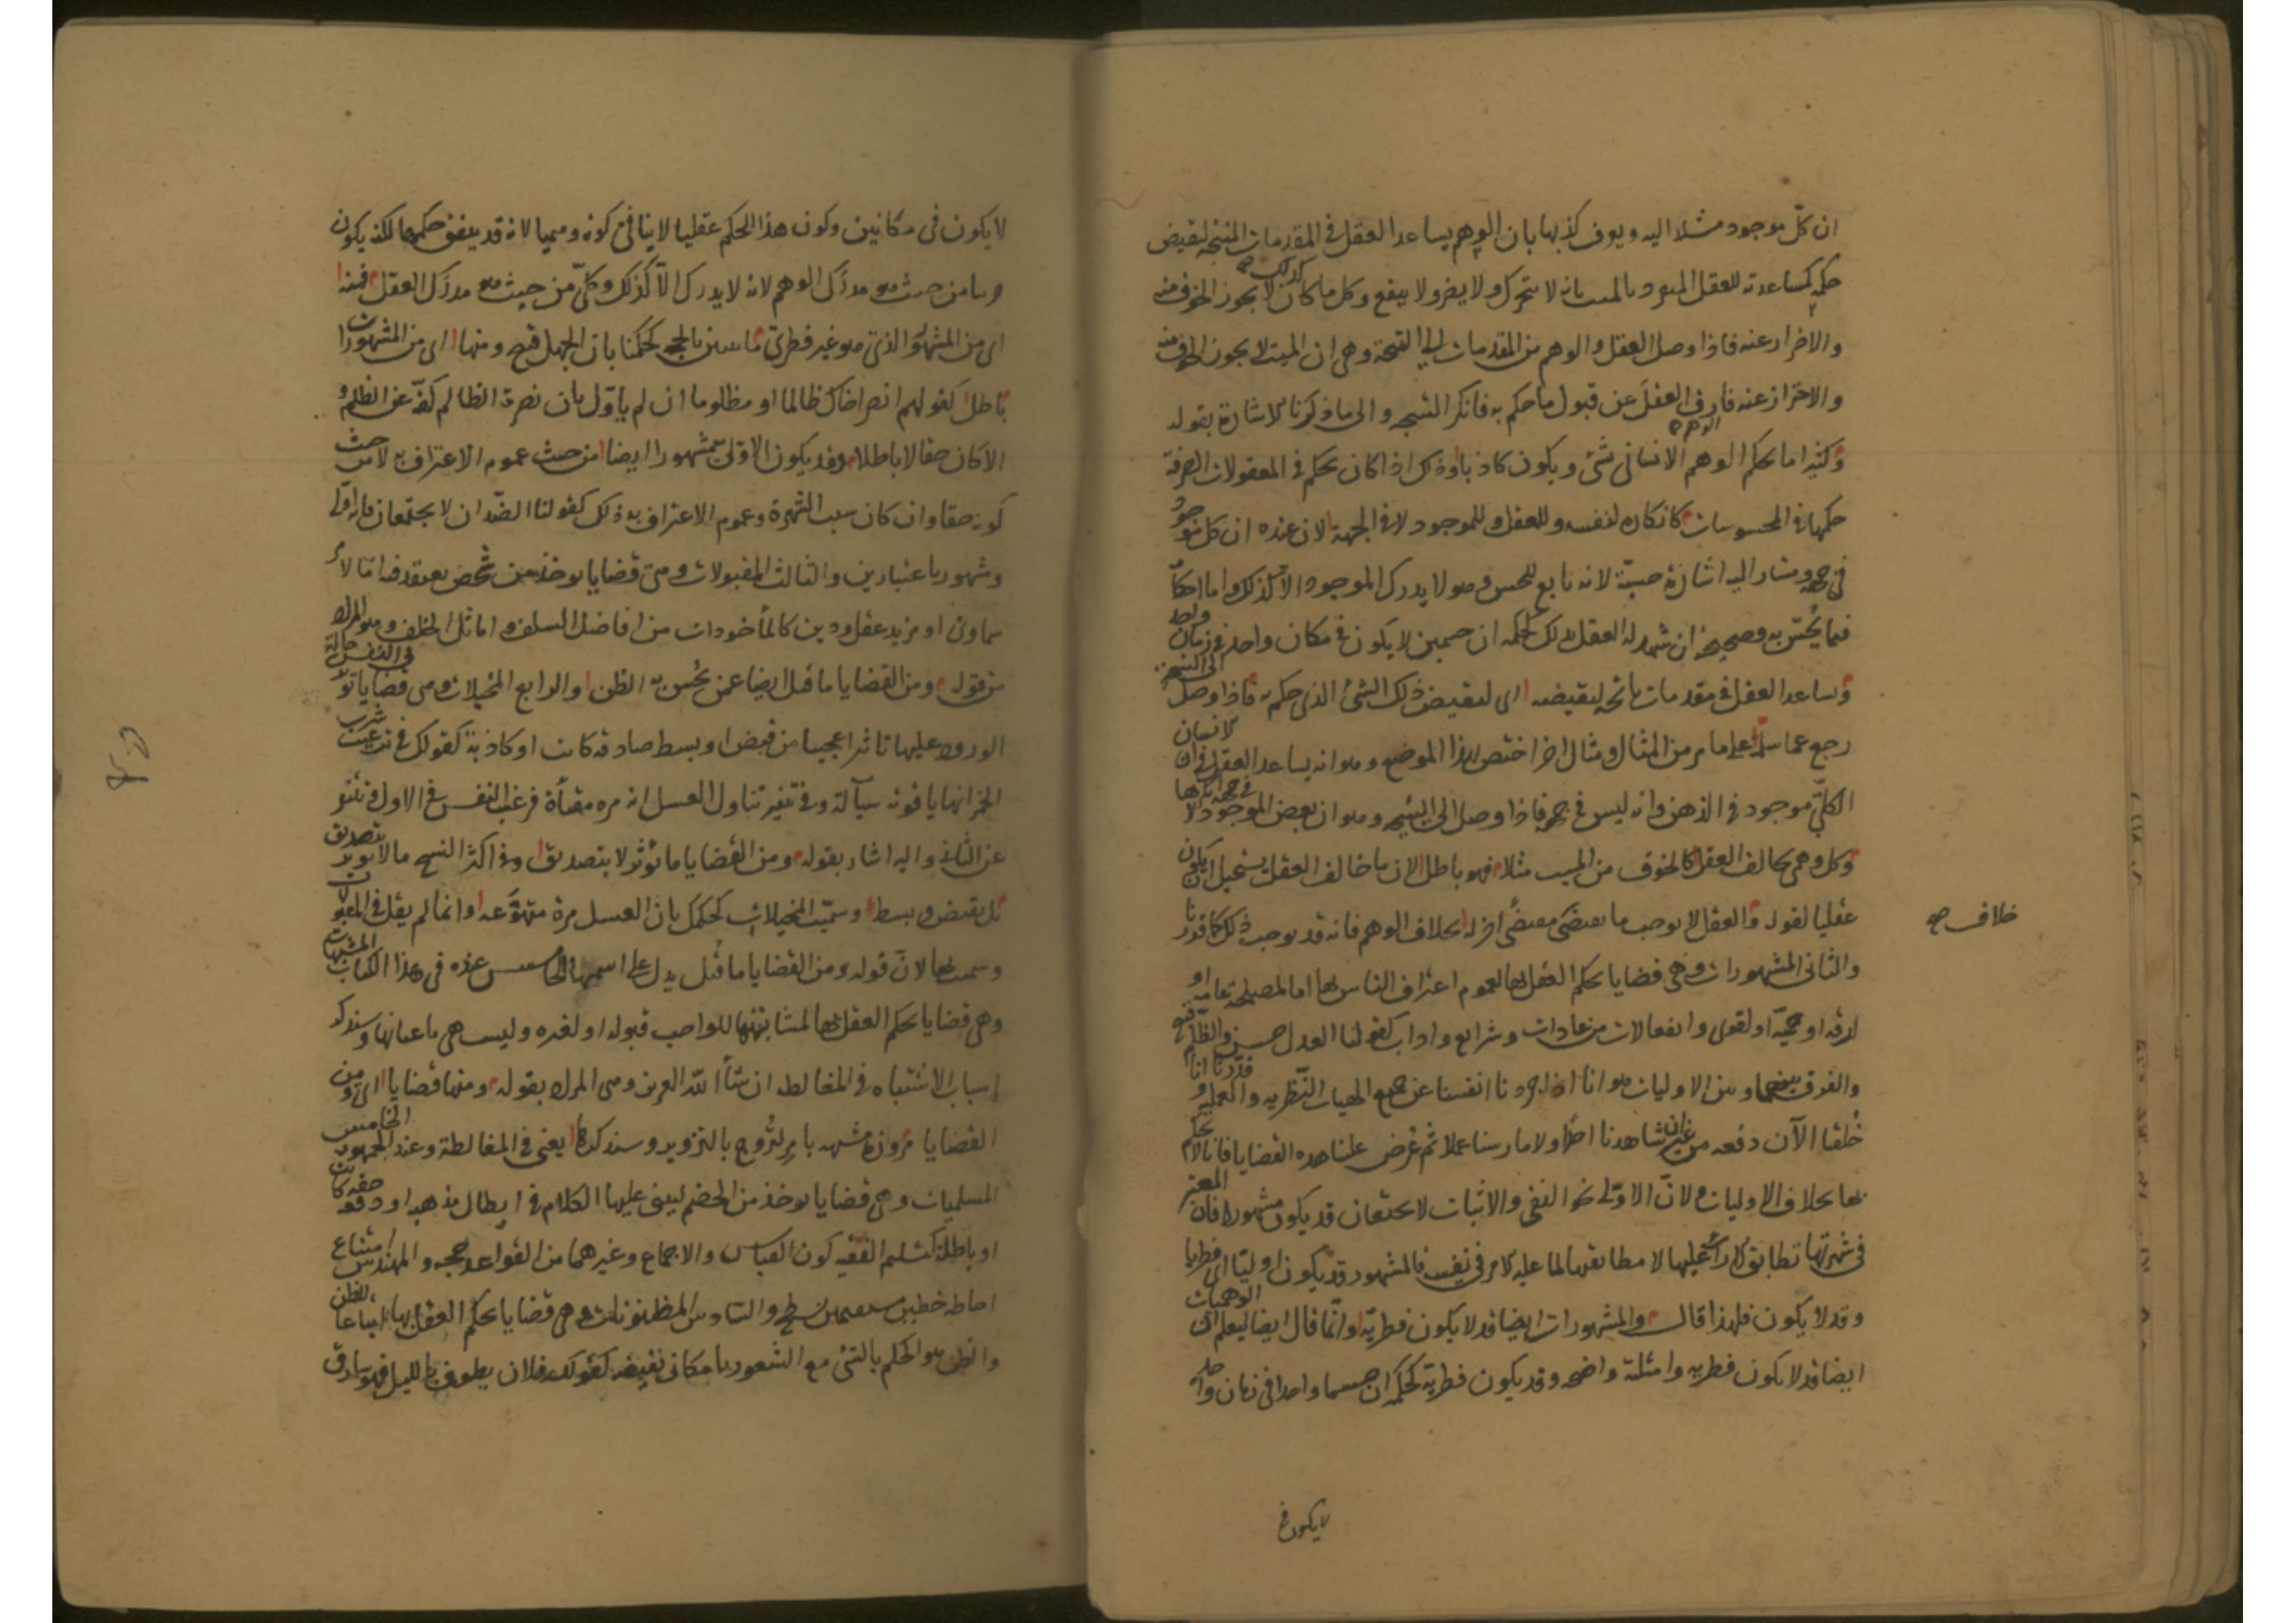 ان كل موجود مشار اليه ويعرف كذبها بان الوهم يساعد العقل فى المقدمات المنتجة لنقيض
حكمه كمساعدته للعقل المجرد بالميت بانه لا يتحرك ولا يضر ولا ينفع وكل ما كان كذلك لا يجوز الخوف منه
والاحتراز عنه فاذا وصل العقل والوهم من المقدمات الى النتيجة وهى ان الميت لا يجوز الخوف منه
والاحتراز عنه فارق الوهم العقل عن قبول ما حكم به فانكر النتيجة والى ما ذكرنا الاشارة بقوله
وكثيرا ما يحكم الوهم الانسانى بشئ ويكون كاذبا وذلك اذا كان يحكم فى المعقولات الصرفة
حكمها فى المحسوسات كانكاره لنفسه وللعقل وللموجود لا فى الجهة لان عنده ان كل موجود
فى جهة ومشار اليه اشارة حسية لانه تابع للحس وهو لا يدرك الموجود الا كذلك واما احكامه
فيما يحس به فصحيحة ان شهد له العقل بذلك كحكمه ان جسمين لا يكون فى مكان واحد فى زمان واحد
وساعد العقل فى مقدمات ناتجة لنقيضه اى لنقيض ذلك الشئ الذى حكم به فاذا وصل الى النتيجة
رجع عما سلمه على ما مر من المثال ومثال اخر اختص بهذا الموضع وهو انه يساعد العقل فى ان الانسان
الكلى موجود فى الذهن وانه ليس فى جهة فاذا وصل الى النتيجة وهو ان بعض الموجود لا فى جهة انكرها
وكل وهمى يخالف العقل كالخوف من الميت مثلا فهو باطل لان ما خالف العقل يستحيل ان يكون
عقليا لقوله والعقل لا يوجب ما يقتضى مقتضى اخر له بخلاف الوهم فانه قد يوجب ذلك كما قررنا
خلاف صح
والثانى المشهورات وهى قضايا يحكم العقل بها لعموم اعتراف الناس بها اما لمصلحة عامة او
لرقة او حمية او لقوى وانفعالات من عادات وشرايع واداب كقولنا العدل حسن والظلم قبيح
والفرق بينهما وبين الاوليات هو انا اذا جردنا انفسنا عن جميع الهيات النظرية والعملية وقدرنا انا
خلقنا الآن دفعة من غير ان شاهدنا احدا ولا مارسنا عملا ثم عرض علينا هذه القضايا فانا لا نحكم
بها بخلاف الاوليات ولان الاولى نحو النفى والاثبات لا يجتمعان قد يكون مشهورا فان المعتبر
فى شهرتها تطابق الاراء عليها لا مطابقتها لما عليه الامر فى نفسه فالمشهور قد يكون اوليا اى فطريا
وقد لا يكون فلهذا قال والمشهورات ايضا قد لا يكون فطرية وانما قال ايضا ليعلم ان الوهميات
ايضا قد لا يكون فطرية وامثلته واضحة وقد يكون فطرية كحكمه ان جسما واحدا فى زمان واحد
لا يكون فى
لا يكون فى مكانين وكون هذا الحكم عقليا لا ينافى كونه وهميا لانه قد يتفق حكمهما لكنه يكون
من حيث هو مدرك الوهم لانه لا يدرك الا كذلك وكلى من حيث هو مدرك العقل فمنها
اى من المشهور الذى هو غير فطرى ما يتبين بالحجة كحكمنا بان الجهل قبيح ومنها اى من المشهورات
باطل كقولهم انصر اخاك ظالما او مظلوما ان لم ياول بان نصرة الظالم كفه عن الظلم و
الا كان حقا لا باطلا وقد يكون الاولى مشهورا ايضا من حيث عموم الاعتراف به لا من حيث
كونه حقا وان كان سبب الشهرة وعموم الاعتراف به ذلك كقولنا الضدان لا يجتمعان فانه اولى
ومشهور باعتبارين والثالث المقبولات وهى قضايا يوخذ من شخص يعتقد فيه اما لامر
سماوى او مزيد عقل ودين كالمأخوذات من افاضل السلف واماثل الخلف وهو المراد
من قوله ومن القضايا ما قبل ايضا عمن يحسن به الظن والرابع المخيلات وهى قضايا تؤثر فى النفس حالة
الورود عليها تاثيرا عجيبا من قبض او بسط صادقة كانت او كاذبة كقولك فى ترغيب شرب
الخمر انها ياقوتة سيالة وفى تنفير تناول العسل انه مرة مقيأة فرغب النفس فى الاول وتنفر
عن الثانى واليه اشار بقوله ومن القضايا ما يؤثر لا بتصديق وفى اكثر النسخ ما لا يؤثر بتصديق
بل بقبض وبسط وسميت المخيلات كحكمك بان العسل مرة متهوعة وانما لم يقل فى المقبولات
وسميت بها لان قوله ومن القضايا ما قبل يدل على اسمها الخامس عنده فى هذا الكتاب المشبهات
وهى قضايا يحكم العقل بها لمشابهتها للواجب قبوله او لغيره وليست هى باعيانها وستدرك
اسباب الاشتباه فى المغالطة ان شاء الله العزيز وهى المراد بقوله ومنها قضايا اى ومن
القضايا مزورة مشبهة بامر لتروج بالتزوير وستدركها يعنى فى المغالطة وعند الجمهور الخامس
المسلمات وهى قضايا يوخذ من الخصم ليبنى عليها الكلام فى ابطال مذهبه او دفعه حقة كانت
او باطلة كتسليم الفقيه كون القياس والاجماع وغيرهما من القواعد حجة والمهندس امتناع
احاطة خطين مستقيمين بسطح والسادس المظنونات وهى قضايا يحكم العقل بها اتباعا للظن
والظن هو الحكم بالشئ مع الشعور بامكان نقيضه كقولك فلان يطوف بالليل فهو سارق